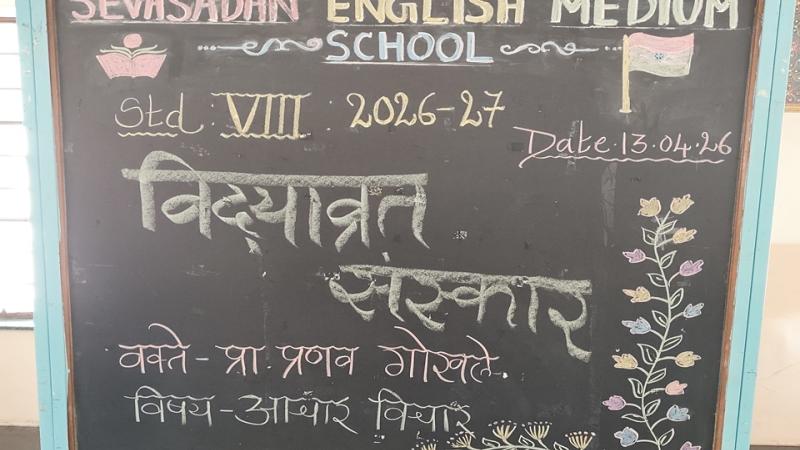 SEVASADAN ENGLISH MEDIUM
SCHOOL
Std VIII 2026-27
Date.13.04.26
विद्याव्रत
संस्कार
वक्ते - प्रा. प्रणव गोखले.
विषय - आचार विचार